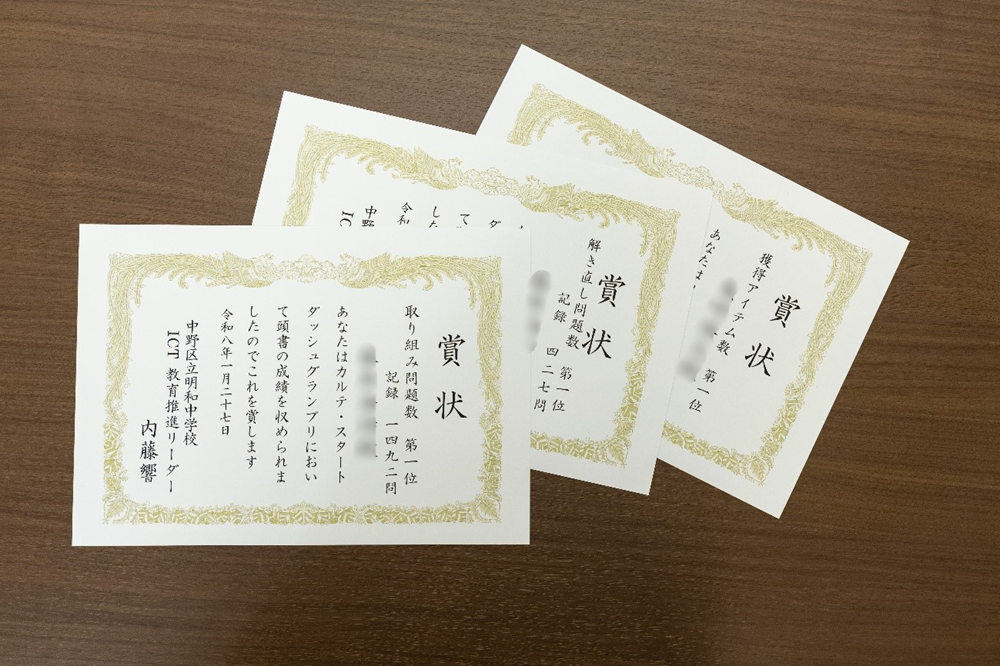 賞状
取り組み問題数 第一位
記録 一四九二問
あなたはカルテ・スタート
ダッシュグランプリにおい
て頭書の成績を収められま
したのでこれを賞します
令和八年一月二十七日
中野区立明和中学校
ICT 教育推進リーダー
内藤響
賞状
解き直し問題数 第一位
記録 四二七問
ダ
て
した
令和
中野
IC
賞状
獲得アイテム数 第一位
あなたは